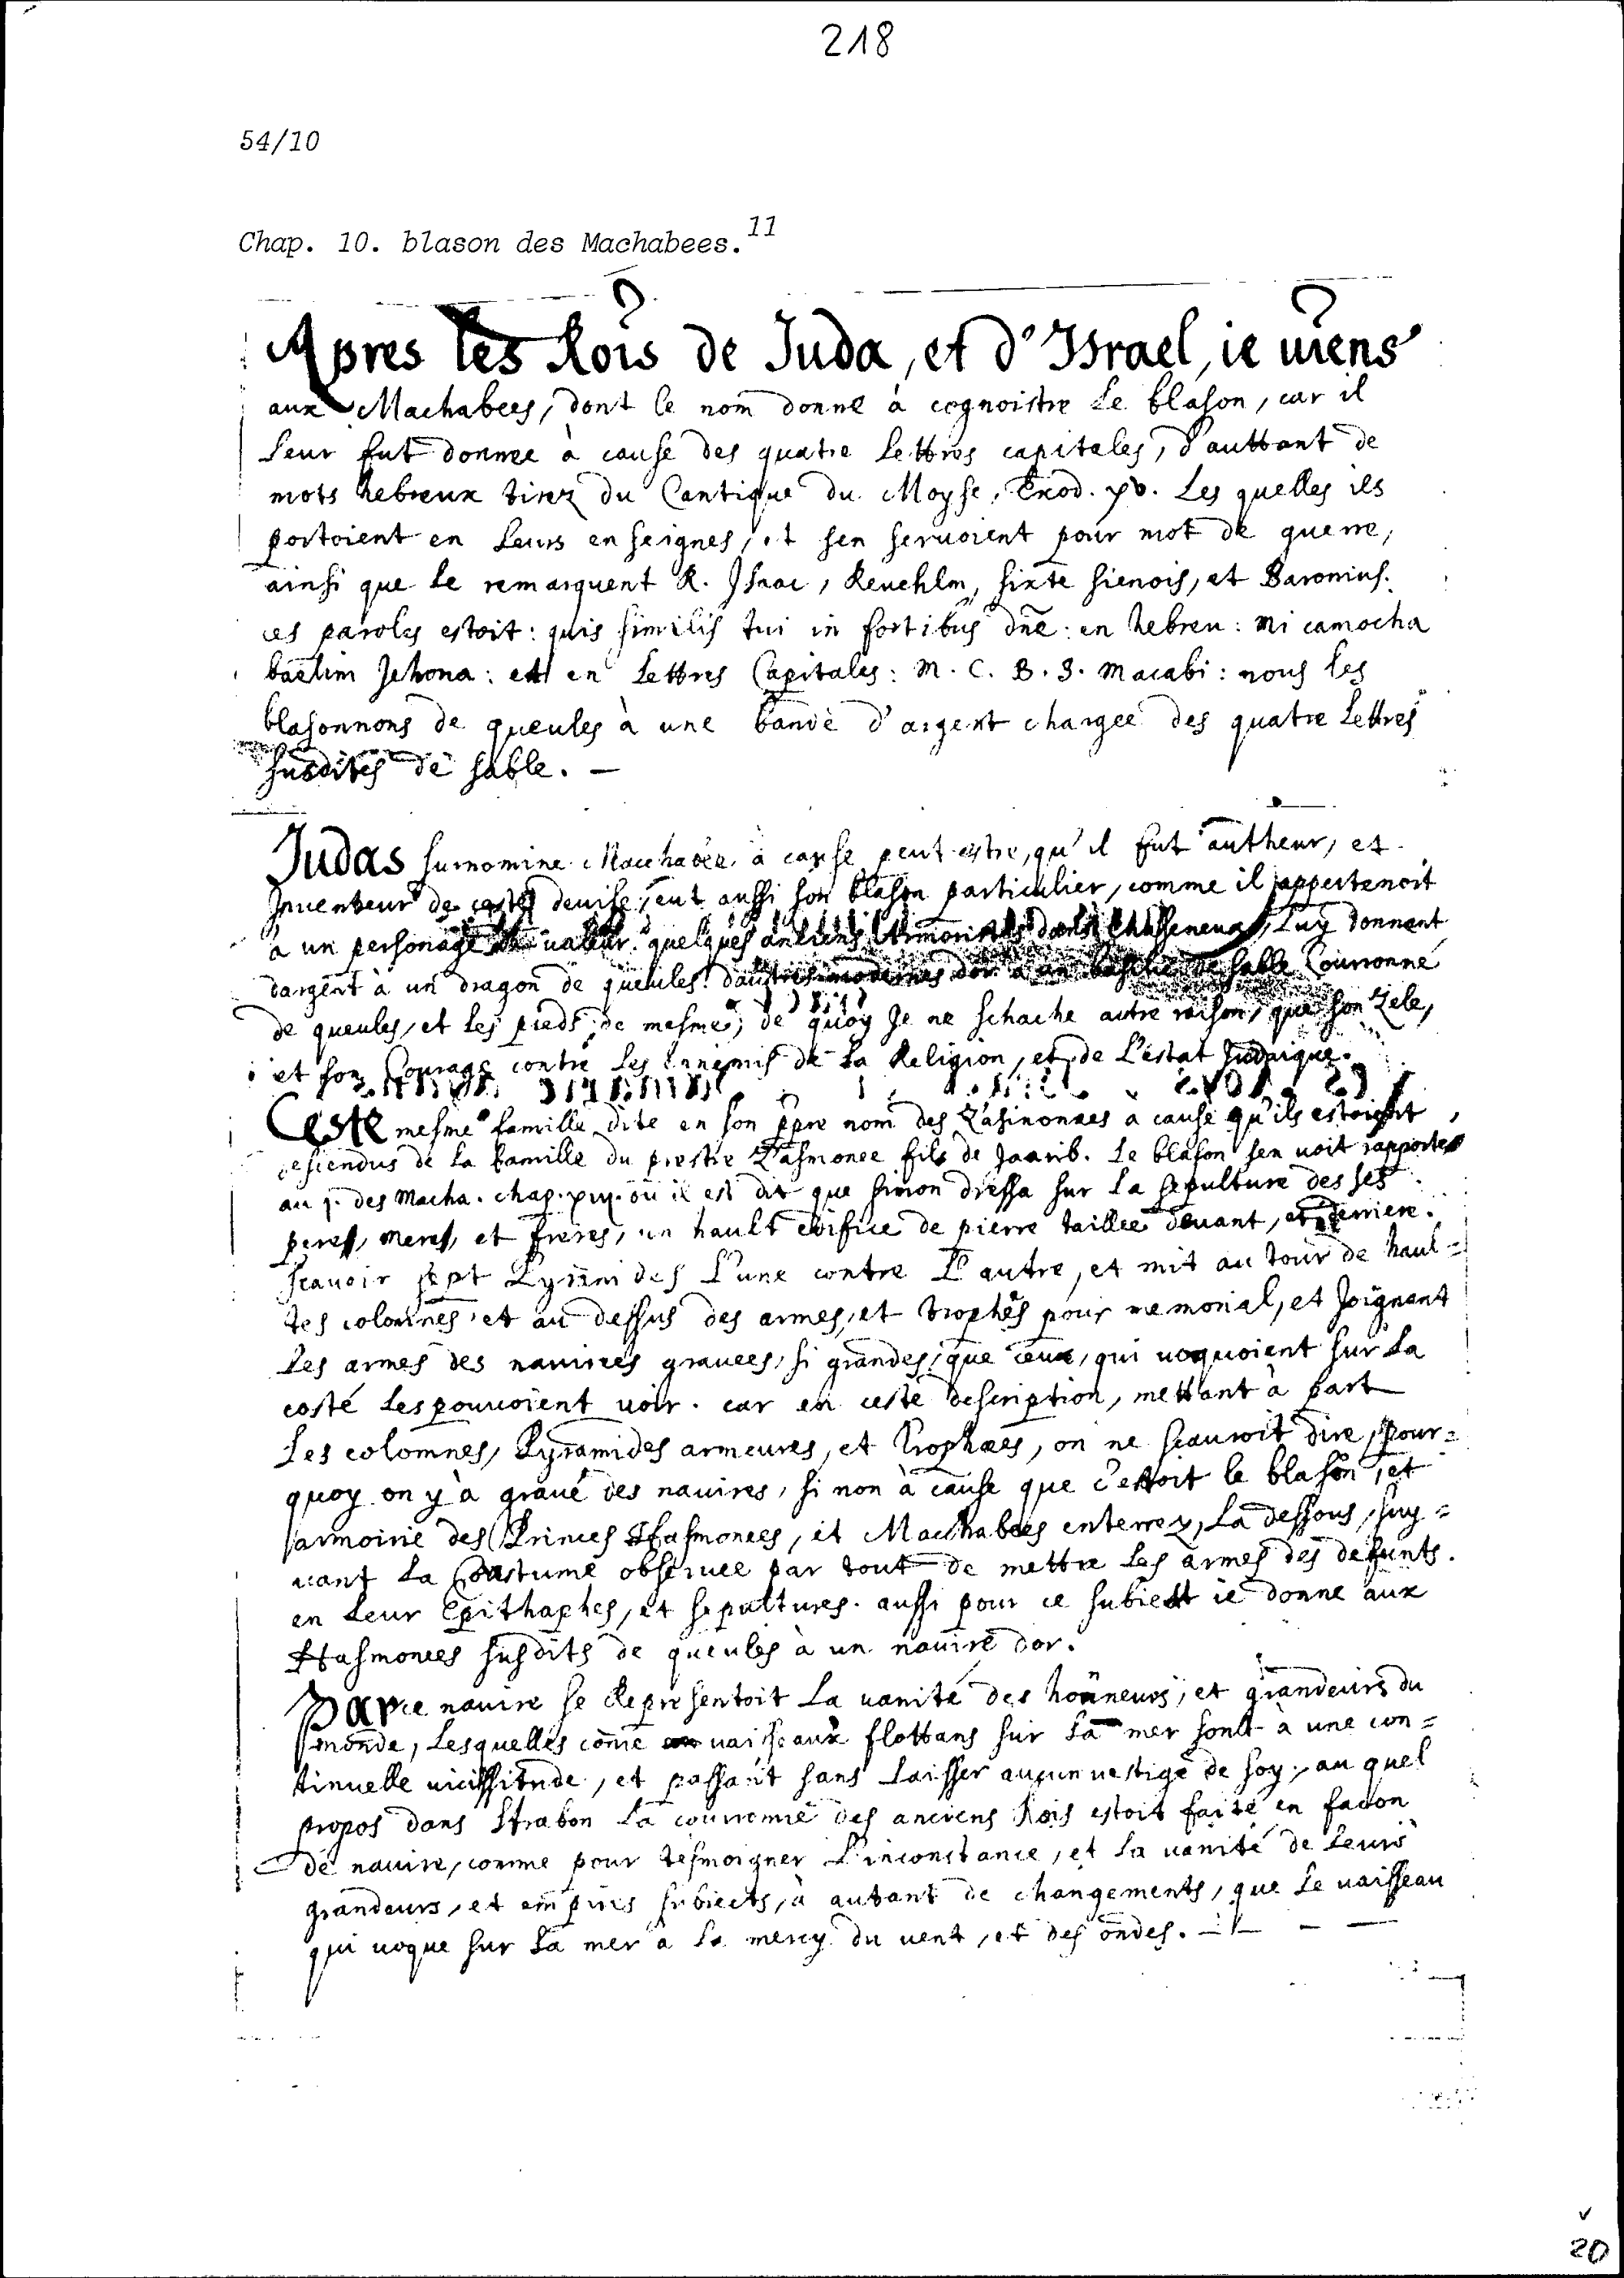 218
54/10
Chap. 10. blason des Machabees.11
Apres les Rois de Juda, et d'Israel, ie uiens
aux Machabees, dont le nom donne à cognoistre le blason, car il
leur fut donnee à cause des quatre lettres capitales, d'auttant de
mots hebreux tirez du Cantique du Moyse, Exod. xv. les quelles ils
portoient en leurs enseignes, et sen seruoient pour mot de guerre,
ainsi que le remarquent R. Isaac, Reuchlin, sixte sienois, et Baronius.
ces paroles estoit: quis similis tui in fortibus dñe: en hebreu: mi camocha
baelim Jehoua: et en lettres Capitales: M. C. B. J. Macabi: nous les
blasonnons de gueules à une bande d'argent chargee des quatre lettres
susdites de sable. —
Judas surnomme Macchabée à cause peut estre, qu'il fut autheur, et
Inuenteur de ceste deuise, eut aussi son blason particulier, comme il appertenoit
à un personage de ualeur. quelques anciens Armorials dans Chasseneux, luy donnent
dargent à un dragon de gueules. dautres modernes dor à un basilic de sable Couronné
de gueules, et les pieds de mesme, de quoy Je ne schache autre raison, que son zele,
et son Courage contre les Ennemis de la Religion, et de l'estat Judaique.
Ceste mesme famille dite en son ppre nom des à cause qu'ils estoient
descendus de la famille du prestre fils de Jaarib. le blason sen uoit rapporte
au 1. des Macha. chap. ou il est dit que simon dressa sur la sepulture des ses
peres, meres, et freres, un hault edifice de pierre taillee deuant, et derriere.
scauoir sept Pyramides l'une contre l'autre, et mit au tour de haul=
tes colomnes, et au dessus des armes, et trophés pour memorial, et Joignant
les armes des nauires grauees, si grandes, que ceux, qui uoquoient sur la
costé les pouuoient uoir. car en ceste description, mettant à part
les colomnes, Pyramides armeures, et trophaees, on ne scauroit dire, pour=
quoy on y à graué des nauires, si non à cause que c'estoit le blason, et
armoirie des Princes Hasmonees, et Macchabees enterrez, la dessous, suy=
uant la Coustume obseruee par tout de mettre les armes des defunts
en leur Epithaphes, et sepultures. aussi pour ce subiect ie donne aux
Hasmonees susdits de gueules à un nauire dor.
Par ce nauire se Representoit la uanité des honneurs, et grandeurs du
monde, lesquelles come uaisseaux flottans sur la mer sont à une con=
tinuelle uicissitude, et passant sans laisser aucun uestige de soy, au quel
propos dans Strabon la couronne des anciens Rois estoit faite en facon
de nauire, comme pour tesmoigner l'inconstance, et la uanité de leurs
grandeurs, et empires subiects, à autant de changements, que le uaisseau
qui uoque sur la mer à la mercy du uent, et des ondes. —
20